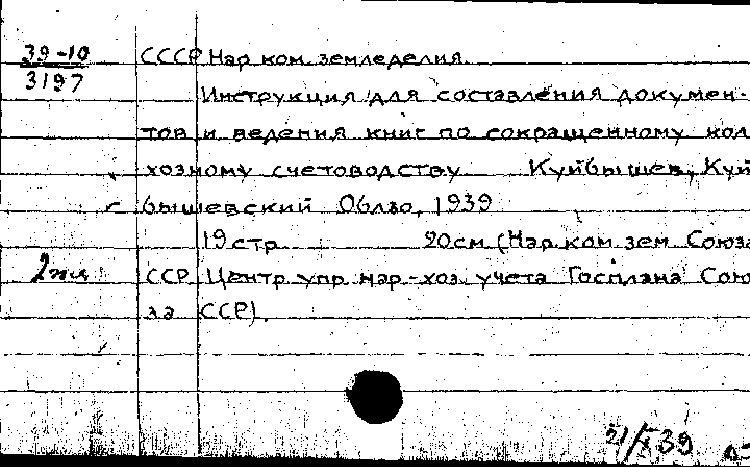 39-10
3197
СССР Нар. ком. земледелия.
Инструкция для составления докумен-
тов и ведения книг по сокращенному кол
хозному счетоводству Куйбышев, Куй
бышевский Облзо, 1939
19 стр 20 см (Нар. ком. зем. Союза
2 экз
ССР. Центр. упр. нар-хоз. учета Госплана Сою
за ССР).
21/X 39